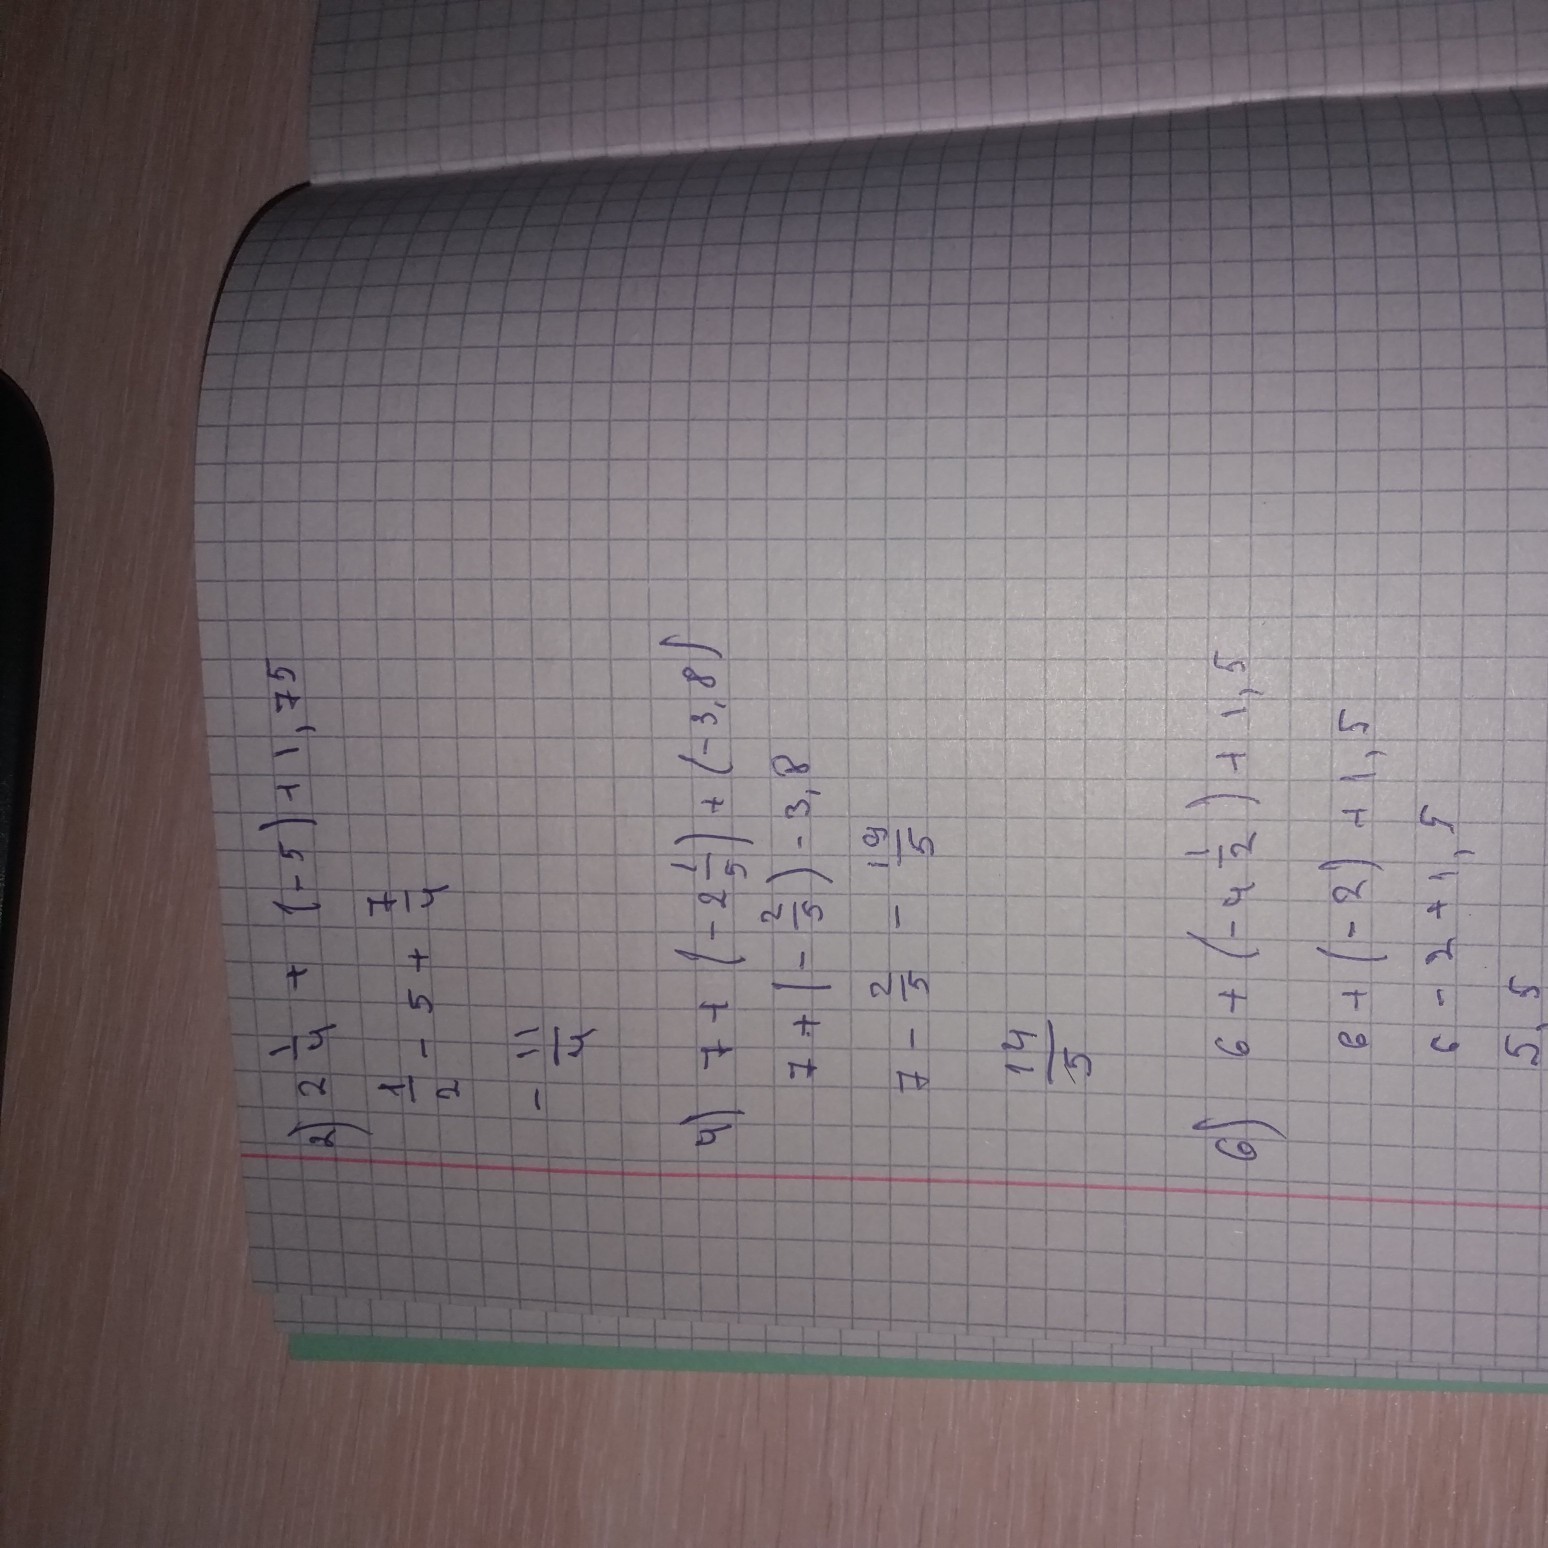 2) 2 1/4 + (-5) + 1,75
1/2 - 5 + 7/4
- 11/4
4) 7 + (-2 1/5) + (-3,8)
7 + (- 2/5) - 3,8
7 - 2/5 - 19/5
14/5
6) 6 + (-4 1/2) + 1,5
6 + (-2) + 1,5
6 - 2 + 1,5
5,5